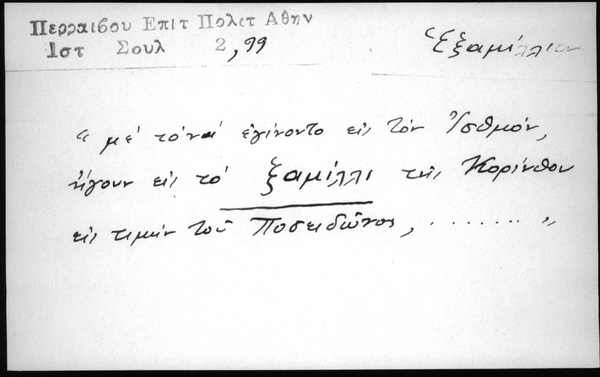 Περραιβου Επιτ Πολιτ Αθην
1στ Σουλ 2,99
Ἑξαμίλλιον
" με τό νά ἐγίνοντο εἰς τόν Ἰσθμόν,
ἤγουν εἰς τό ξαμίλλι τῆς Κορίνθου
εἰς τιμήν τοῦ Ποσειδῶνος, ........ "